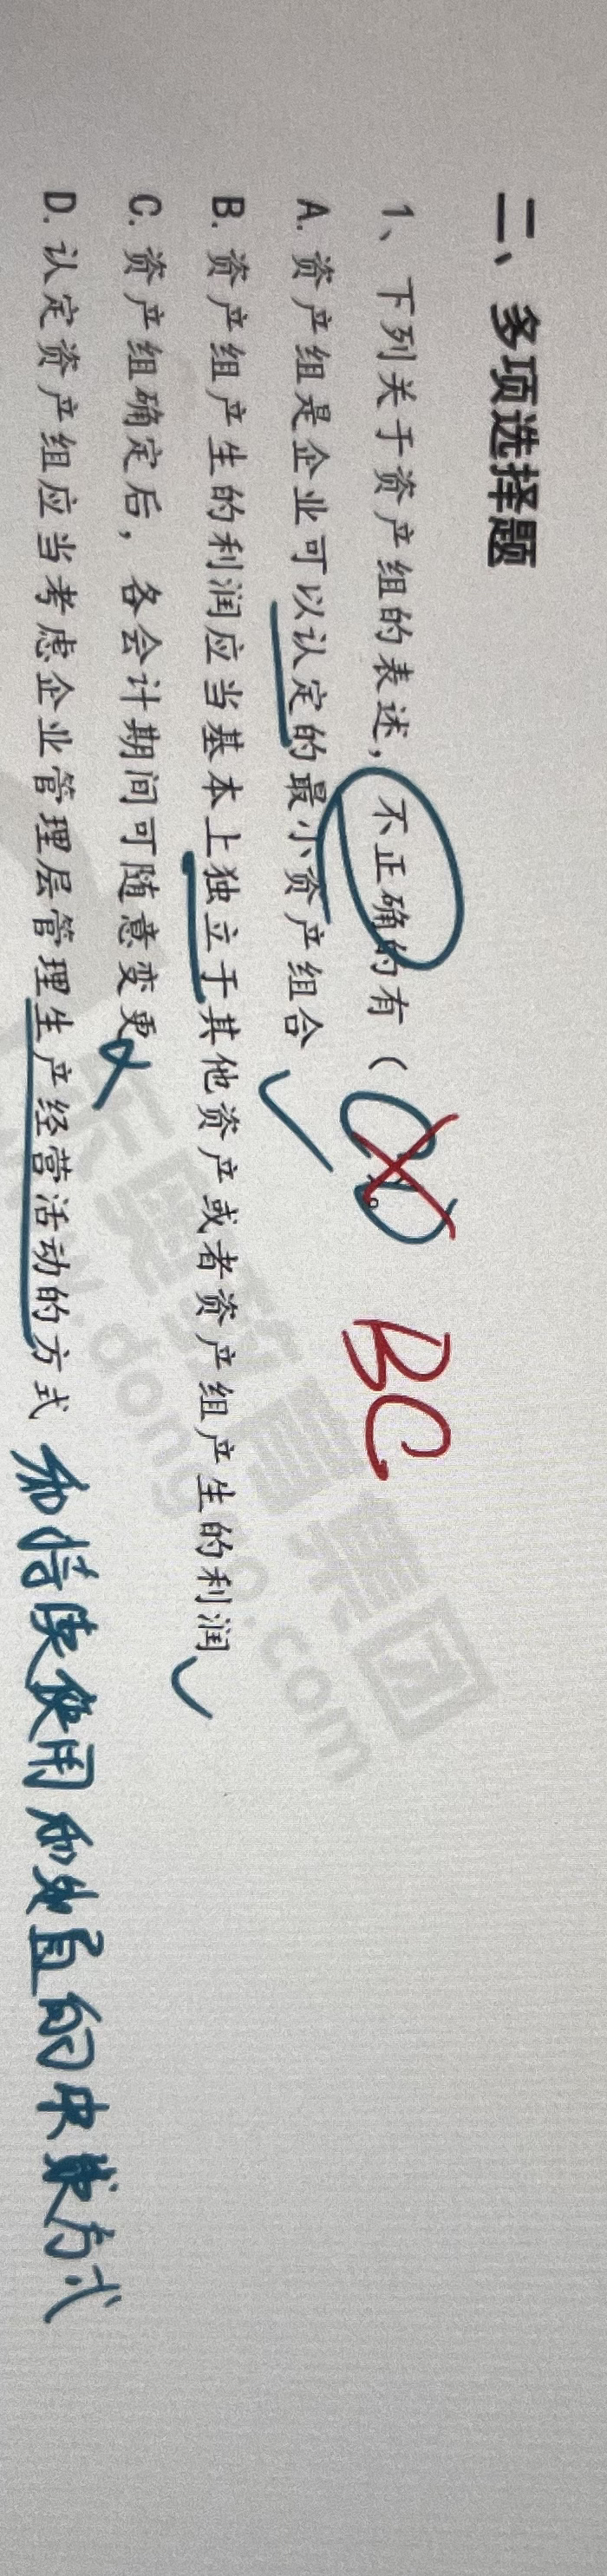 二、多项选择题
1、下列关于资产组的表述，不正确的有（CD）。 BC
A. 资产组是企业可以认定的最小资产组合 ✓
B. 资产组产生的利润应当基本上独立于其他资产或者资产组产生的利润 ✓
C. 资产组确定后，各会计期间可随意变更 ×
D. 认定资产组应当考虑企业管理层管理生产经营活动的方式 和持续使用和处置的决策方式